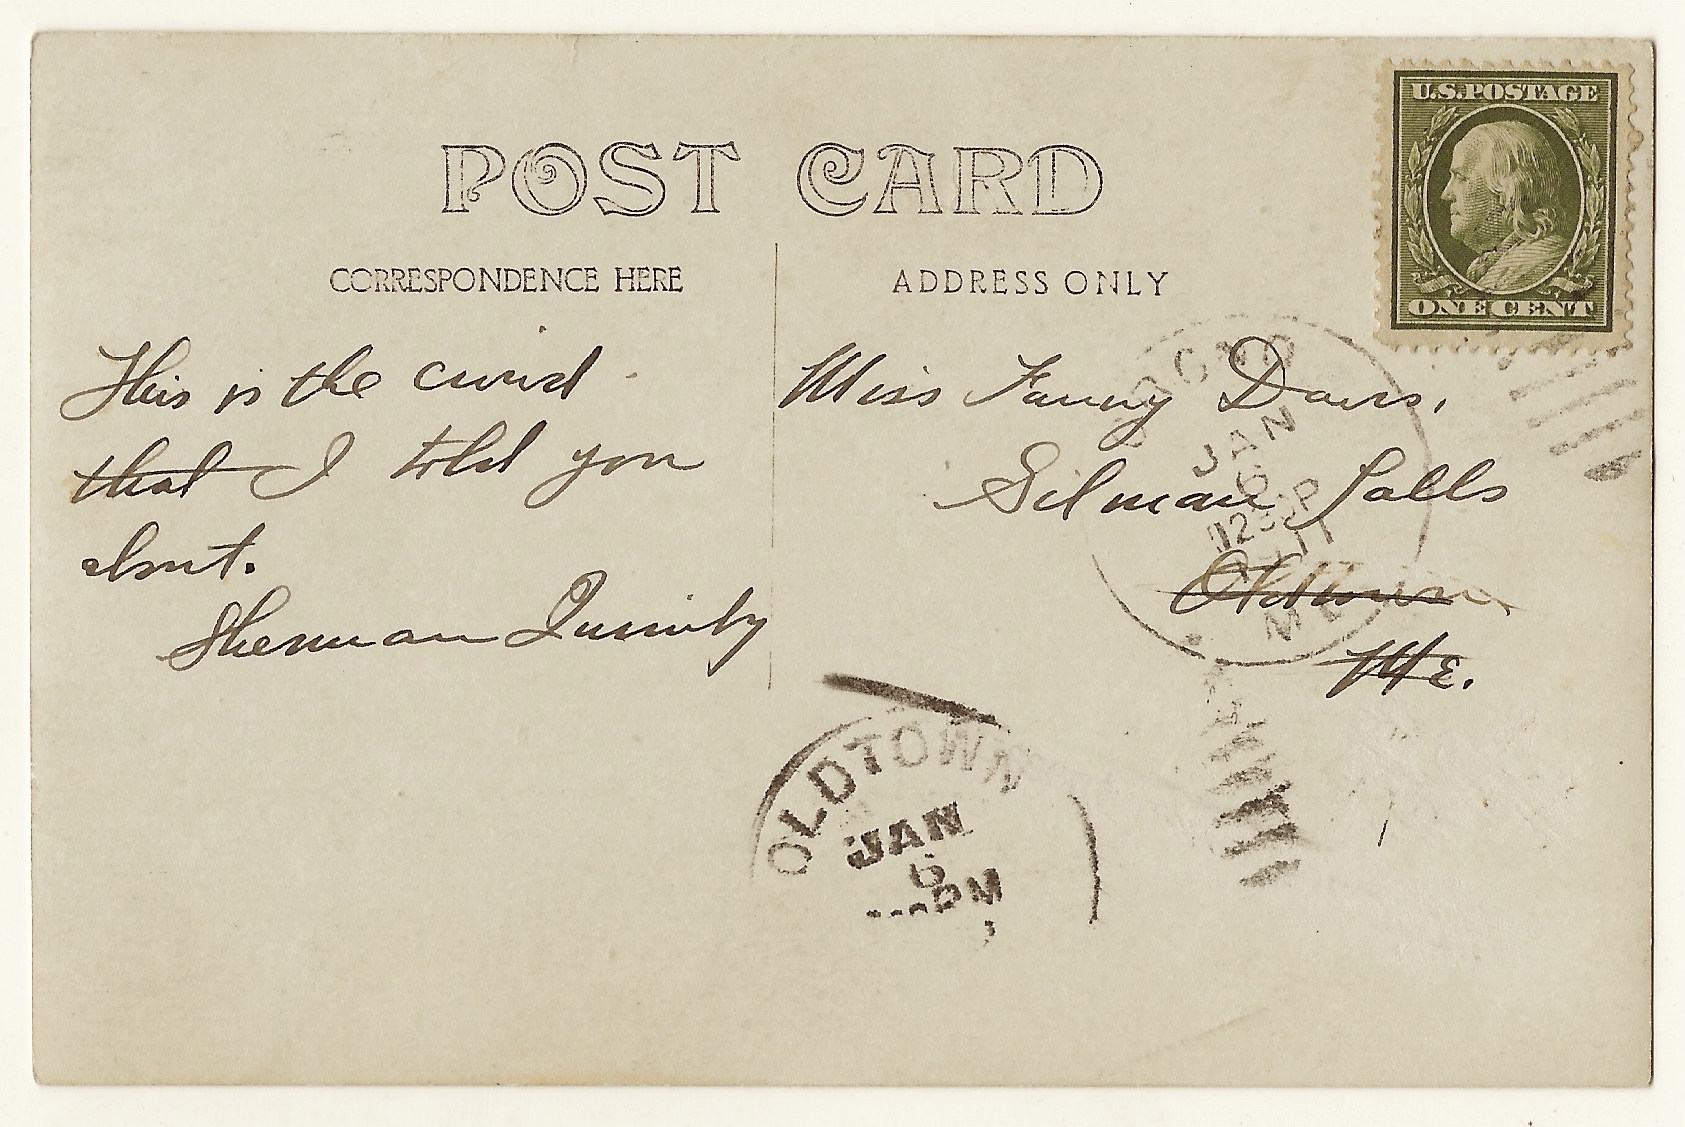 U.S. POSTAGE
ONE CENT
POST CARD
CORRESPONDENCE HERE
ADDRESS ONLY
This is the
that I told you
about.
Sherman Quimby
Miss Fanny Davis,
Gilman Falls
Oldtown
Me.
ORONO
JAN
6
1230P
1911
ME
OLDTOWN
JAN
6
PM